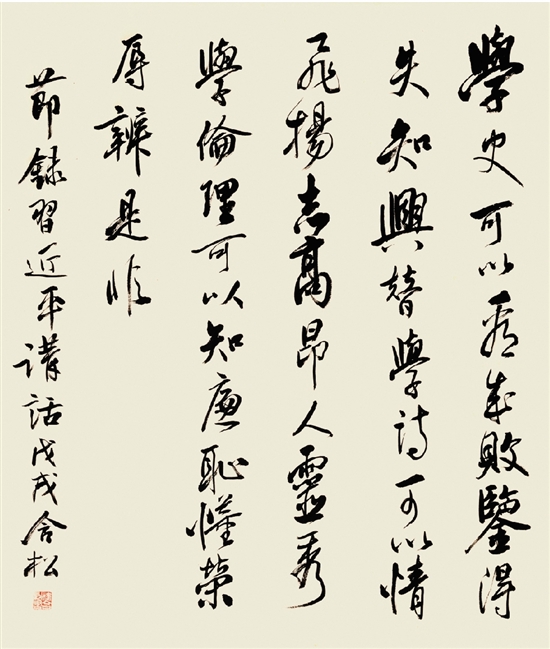 學史可以看成敗鑒得
失知興替學詩可以情
飛揚志高昂人靈秀
學倫理可以知廉恥懂榮
辱辨是非
節錄習近平講話戊戌合松